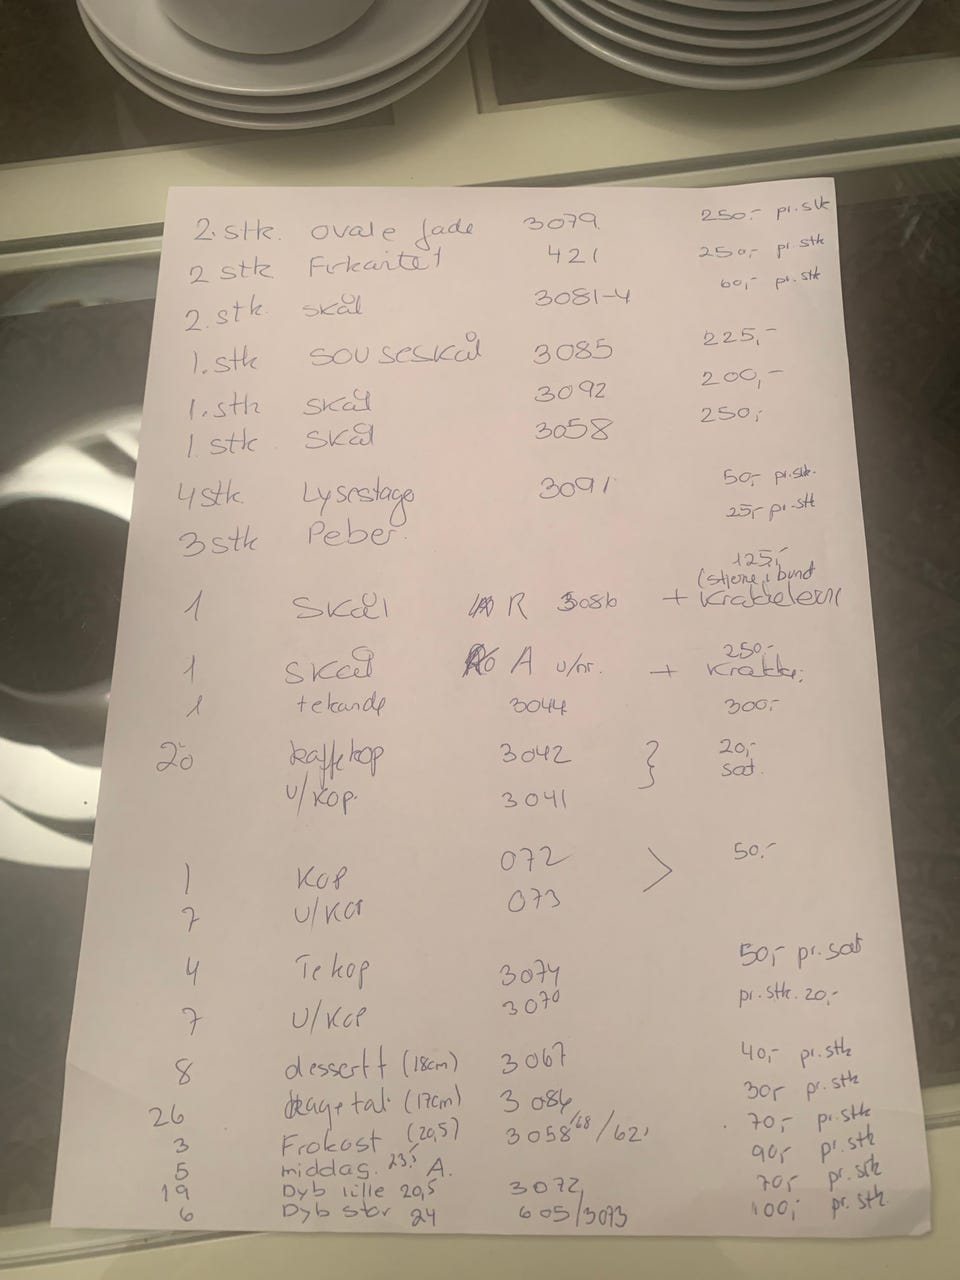 2. stk. ovale fade 3079 250,- pr. stk
2 stk Firkantet 421 250,- pr. stk
2. stk. skål 3081-4 60,- pr. stk
1. stk souseskål 3085 225,-
1. stk skål 3092 200,-
1. stk skål 3058 250,-
4 stk Lysestage 3091 50,- pr. stk.
3 stk Peber. 25,- pr. stk
125,-
(stjerne i bund
1 Skål R 3086 + Krakeleret
250,-
1 skål A u/nr. + Krakke.
1 tekande 3044 300,-
20 kaffekop 3042 } 20,-
sæt.
u/kop. 3041
1 Kop 072 > 50,-
7 u/kop 073
4 Tekop 3074 50,- pr. sæt
7 u/kop 3070 pr. stk. 20,-
8 dessertt (18cm) 3067 40,- pr. stk
26 kagetal. (17cm) 3086 30,- pr. stk
3 Frokost (20,5) 3058/68/621 70,- pr. stk
5 middag. 23,5 A. 90,- pr. stk
19 Dyb lille 20,5 3072 70,- pr. stk
6 Dyb stor 24 605/3073 100,- pr. stk.